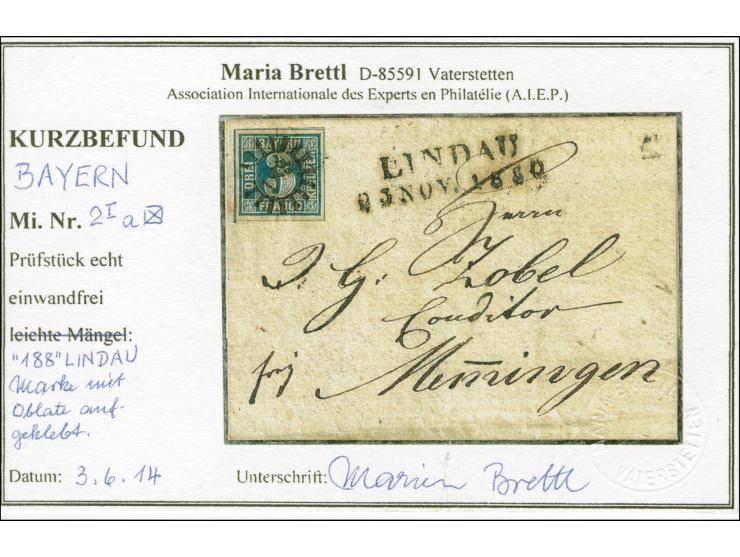 Maria Brettl D-85591 Vaterstetten
Association Internationale des Experts en Philatélie (A.I.E.P.)
KURZBEFUND
BAYERN
Mi. Nr. 2 I a ⊠
Prüfstück echt
einwandfrei
leichte Mängel:
"188" LINDAU
Marke mit
Oblate auf-
geklebt.
BAYERN
DREI
3
KREUZER
FRANCO
LINDAU
NOV. 1850
Herrn
J. G. Zobel
Conditor
frj Mem̄ingen
VATERSTETTEN
Datum: 3.6.14 Unterschrift: Maria Brettl